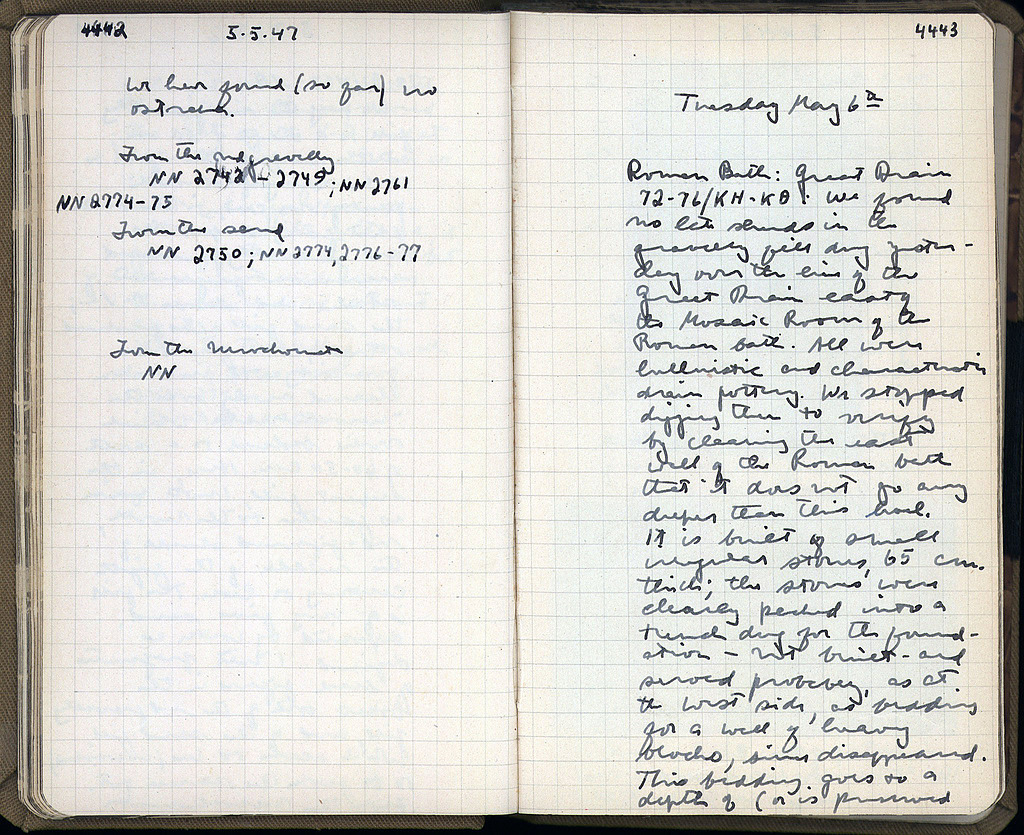 4442
5·5·47
We have found (so far) no
ostraka.
From the red gravelly
NN 2742 – 2749; NN 2761
NN 2774-75
From the sand
NN 2750; NN 2774, 2776-77
From the
NN
4443
Tuesday May 6th
Roman Bath: Great Drain
72-76/KH-KΘ: We found
no late sherds in the
gravelly fill dug yester-
day over the line of the
Great Drain east of
the Mosaic Room of the
Roman bath. All were
hellenistic and characteristic
drain pottery. We stopped
digging then to verify
by clearing the east
wall of the Roman bath
that it does not go any
deeper than this level.
It is built of small
irregular stones, 65 cm.
thick; the stones were
clearly packed into a
trench dug for the found-
ation – not built – and
served probably, as at
the west side, as bedding
for a wall of heavy
blocks, since disappeared.
This bedding goes to a
depth of (or is preserved